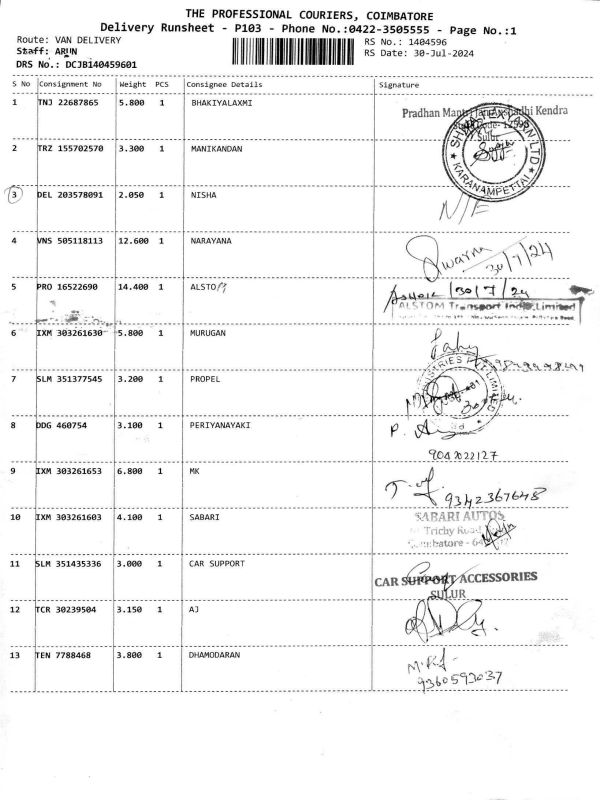 THE PROFESSIONAL COURIERS, COIMBATORE
Delivery Runsheet - P103 - Phone No.:0422-3505555 - Page No.:1
Route: VAN DELIVERY
RS No.: 1404596
Staff: ARUN
RS Date: 30-Jul-2024
DRS No.: DCJB140459601
S No Consignment No Weight PCS Consignee Details Signature
1 TNJ 22687865 5.800 1 BHAKIYALAXMI
Pradhan Kendra
Sulur
KARANAMPETTAI
2 TRZ 155702570 3.300 1 MANIKANDAN
3 DEL 203578091 2.050 1 NISHA
N/E
4 VNS 505118113 12.600 1 NARAYANA
Swarna
30/7/24
5 PRO 16522690 14.400 1 ALSTOM
Ashok 30/7/24
ALSTOM Transport India Limited
6 IXM 303261630 5.800 1 MURUGAN
7 SLM 351377545 3.200 1 PROPEL
8 DDG 460754 3.100 1 PERIYANAYAKI
9042022127
9 IXM 303261653 6.800 1 MK
9342367648
10 IXM 303261603 4.100 1 SABARI
SABARI AUTOS
Trichy Road
Coimbatore
11 SLM 351435336 3.000 1 CAR SUPPORT
CAR SUPPORT ACCESSORIES
SULUR
12 TCR 30239504 3.150 1 AJ
13 TEN 7788468 3.800 1 DHAMODARAN
9360593037